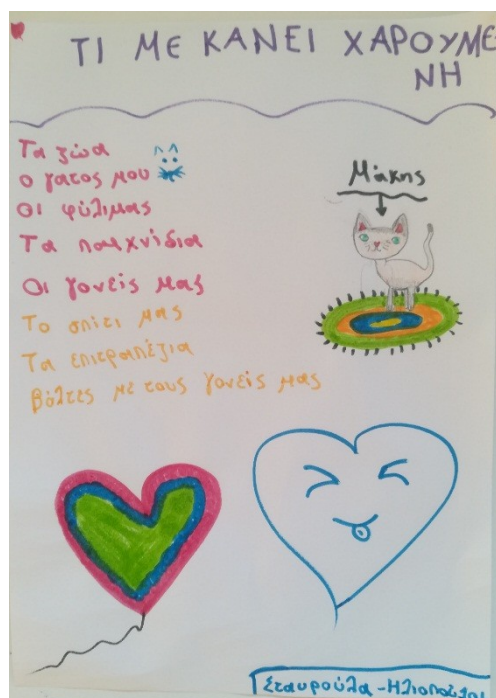 ΤΙ ΜΕ ΚΑΝΕΙ ΧΑΡΟΥΜΕ
ΝΗ
Τα ζώα
Ο γατος μου
Οι φύλιμας
Τα παιχνίδια
Οι γονείς μας
Το σπίτι μας
Τα επιτραπέζια
βόλτες με τους γονείς μας
Μάκης
Σταυρούλα-Ηλιοπούλου